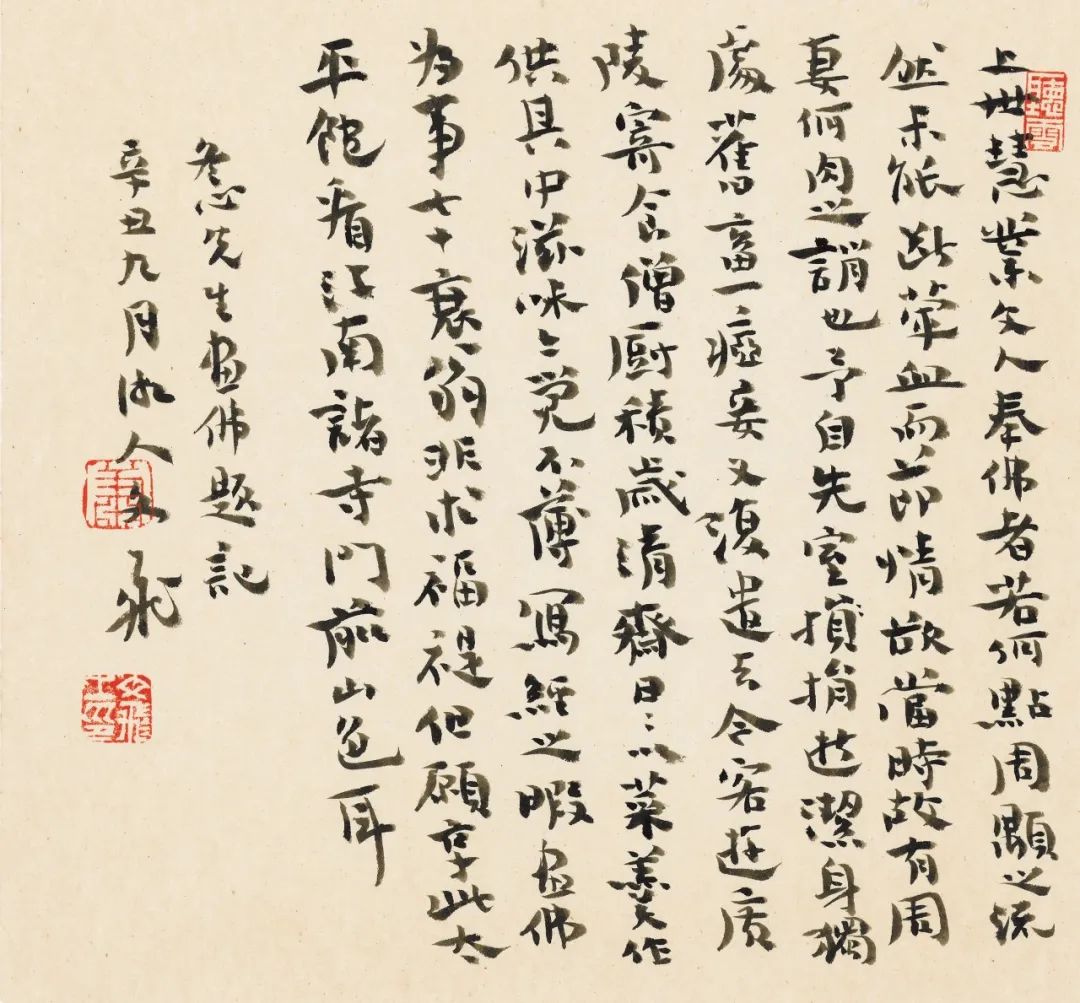 聽雲
上世慧業文人奉佛者若何點周顒之流
然未能斷葷血而節情欲當時故有周
妻何肉之誚也予自先室損捐逝潔身獨
處舊畜一瘂妾又復遣去今客遊廣
陵寄食僧厨積歲清齋日〻以菜羹作
供具中滋味亦覺不薄寫經之暇畫佛
為事七十衰翁非求福禔但願享此太
平飽看江南諸寺門前山色耳
冬心先生畫佛題記
辛丑九月人文飛